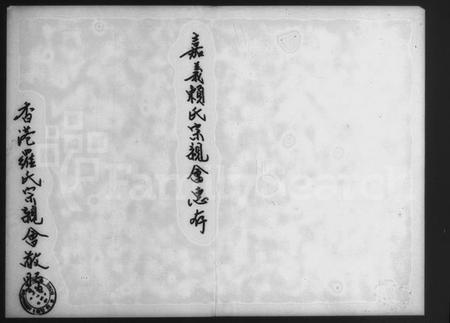 嘉義賴氏宗親會惠存
香港羅氏宗親會敬贈
FamilySearch